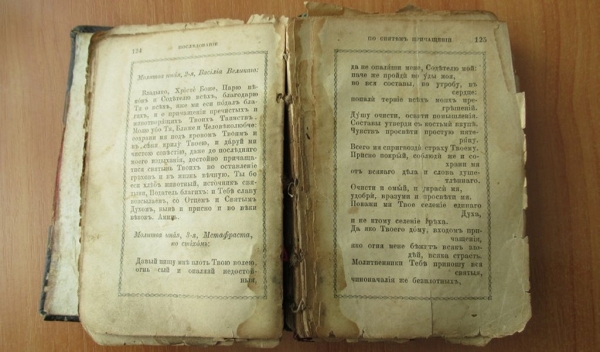 124
ПОСЛѢДОВАНІЕ
Молитва иная, 2-я, Василія Великаго:
Владыко, Христе Боже, Царю вѣ-
ковъ и Содѣтелю всѣхъ, благодарю
Тя о всѣхъ, яже ми еси подалъ бла-
гихъ, и о причащеніи пречистыхъ и
животворящихъ Твоихъ Таинствъ.
Молю убо Тя, Блаже и Человѣколюбче:
сохрани мя подъ кровомъ Твоимъ и
въ сѣни крилу Твоею, и даруй ми
чистою совѣстію, даже до послѣдняго
моего издыханія, достойно причаща-
тися святынь Твоихъ во оставленіе
грѣховъ и въ жизнь вѣчную. Ты бо
еси хлѣбъ животный, источникъ свя-
тыни, Податель благихъ: и Тебѣ славу
возсылаемъ, со Отцемъ и Святымъ
Духомъ, нынѣ и присно и во вѣки
вѣковъ. Аминь.
Молитва иная, 3-я, Метафраста,
по стихомъ:
Давый пищу мнѣ плоть Твою волею,
огнь сый и опаляяй недостой-
ныя,
ПО СВЯТѢМЪ ПРИЧАЩЕНІИ.
125
да не опалиши мене, Содѣтелю мой:
паче же пройди во уды моя,
во вся составы, во утробу, въ
сердце:
попали терніе всѣхъ моихъ пре-
грѣшеній.
Душу очисти, освяти помышленія.
Составы утверди съ костьми вкупѣ.
Чувствъ просвѣти простую пяте-
рицу.
Всего мя спригвозди страху Твоему.
Присно покрый, соблюди же и со-
храни мя
отъ всякаго дѣла и слова душе-
тлѣннаго.
Очисти и омый, и украси мя,
удобри, вразуми и просвѣти мя.
Покажи мя Твое селеніе единаго
Духа,
и не ктому селеніе грѣха.
Да яко Твоего дому, входомъ при-
чащенія,
яко огня мене бѣжитъ всякъ зло-
дѣй, всяка страсть.
Молитвенники Тебѣ приношу вся
святыя,
чиноначалія же безплотныхъ,